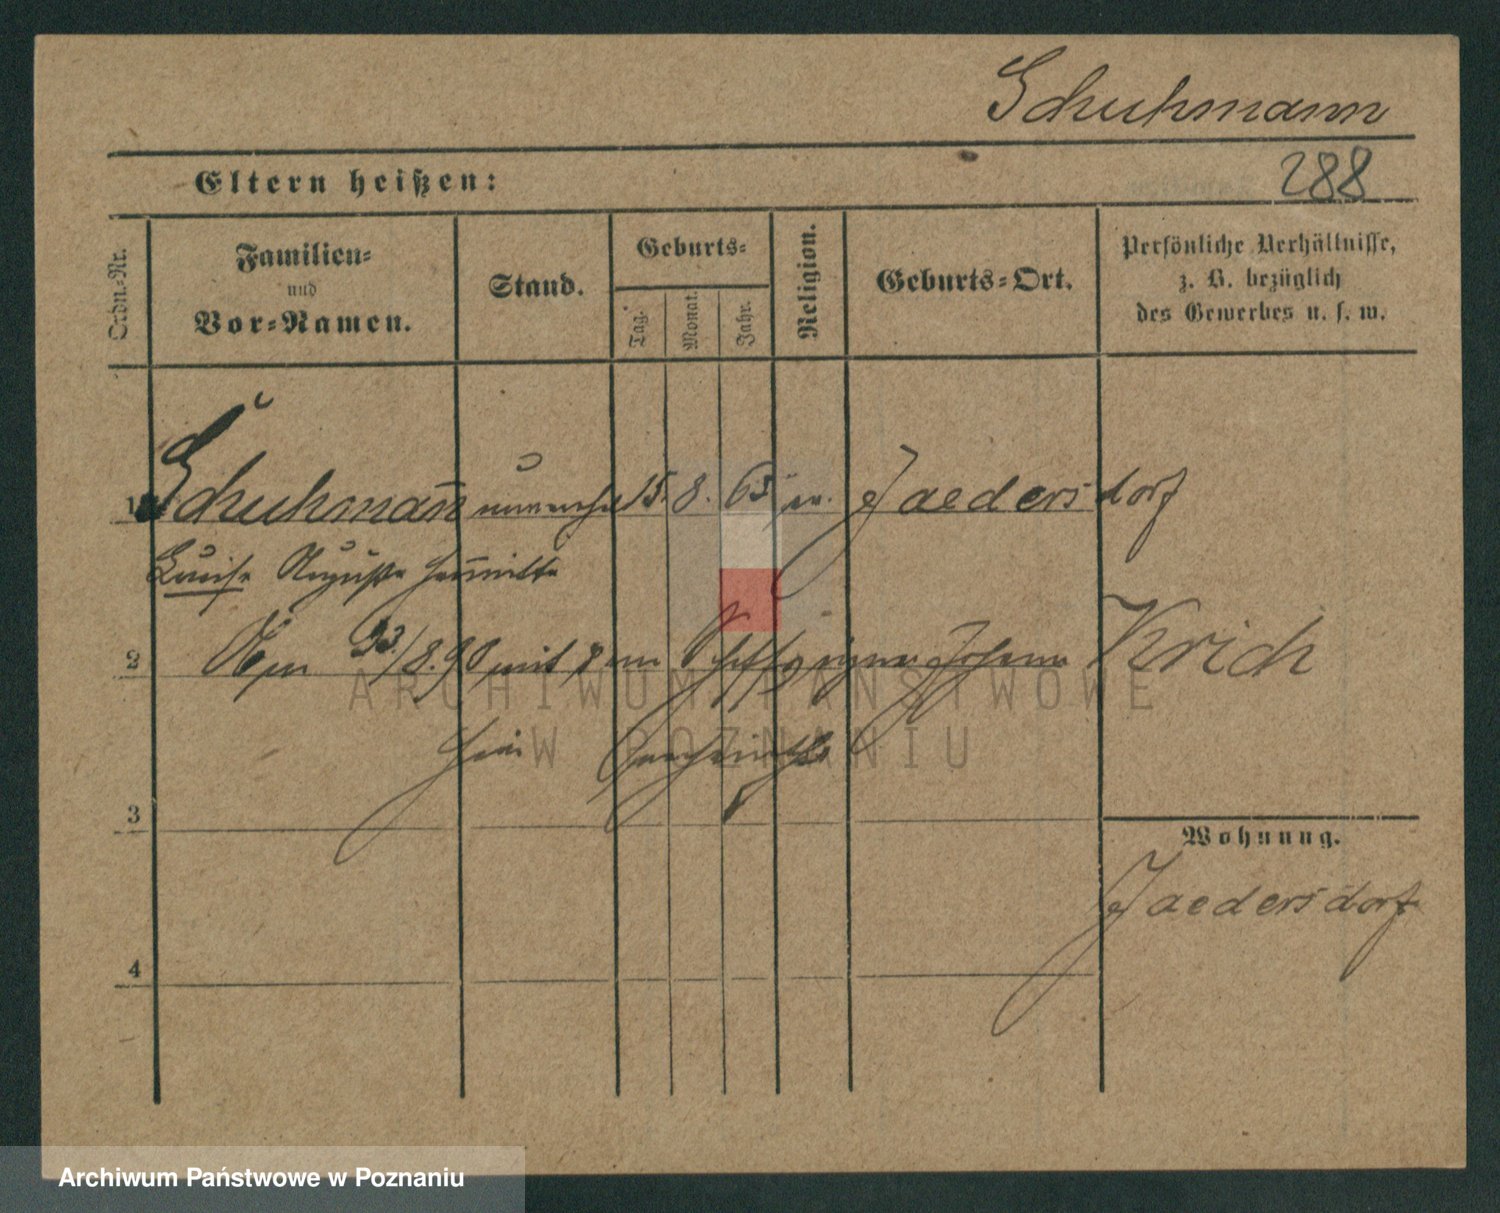 Schuhmann
288
Eltern heißen:
Ordn.-Nr.
Familien-
und
Vor-Namen.
Stand.
Geburts-
Tag.
Monat.
Jahr.
Religion.
Geburts-Ort.
Persönliche Verhältnisse,
z. B. bezüglich
des Gewerbes u. s. w.
1 Schuhman̄ unverehe 15. 8. 63 ev. Jaedersdorf
Luise Auguste Henriette
2 Am 23./8.90 mit dem Schiffseigner Johann Krich
3
Wohnung.
Jaedersdorf
4
ARCHIWUM PAŃSTWOWE
W POZNANIU
Archiwum Państwowe w Poznaniu